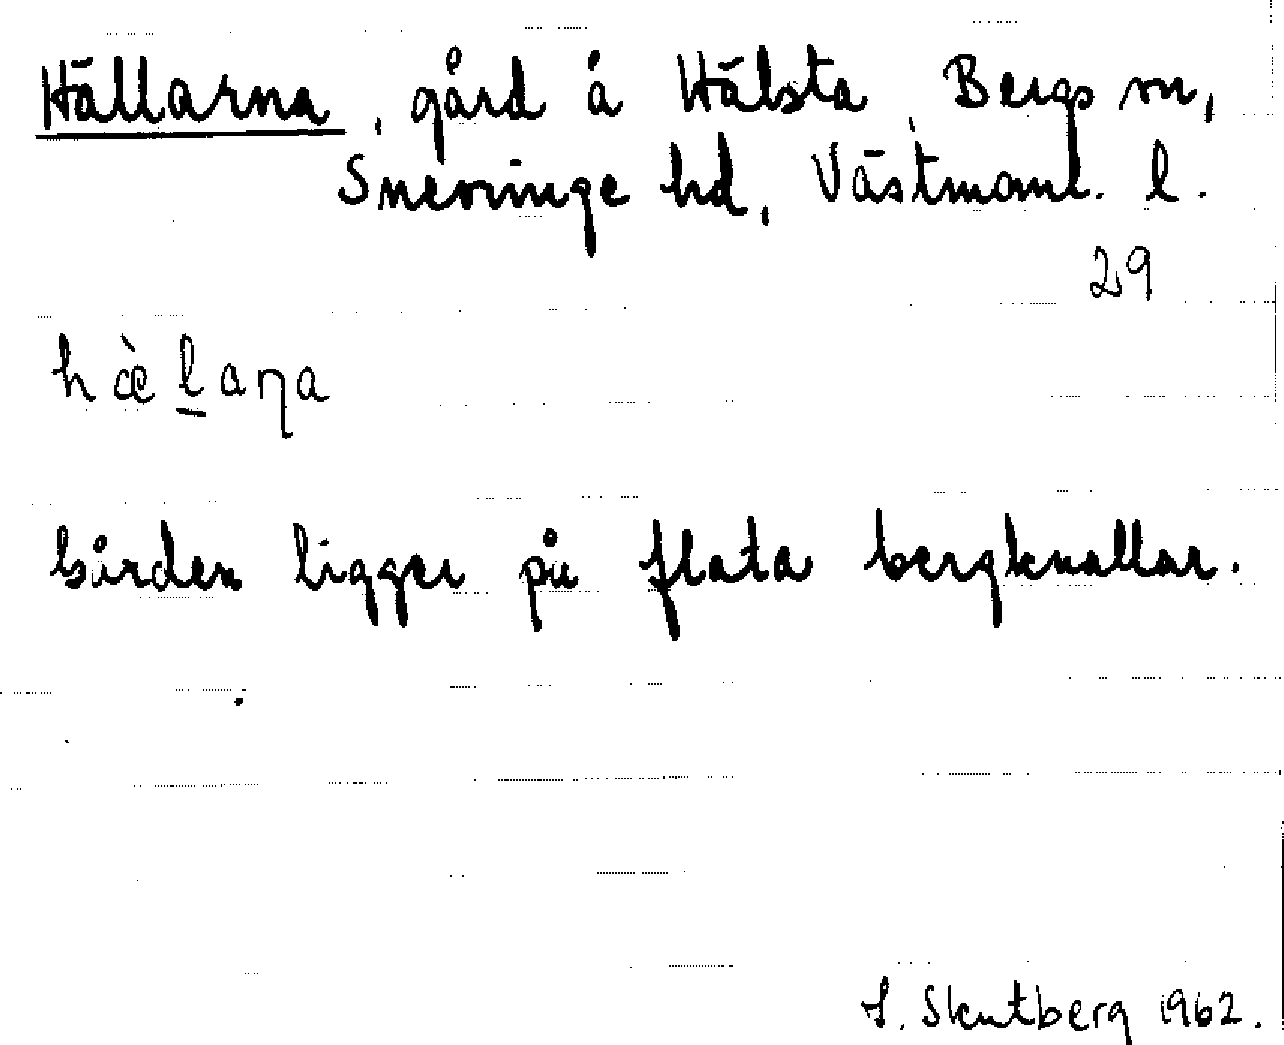 Hällarna, gård å Hälsta, Bergs sn,
Snevringe hd, Västmanl. l.
29
hæ̀l̲aɳa
Gården ligger på flata bergknallar.
S. Skutberg 1962.